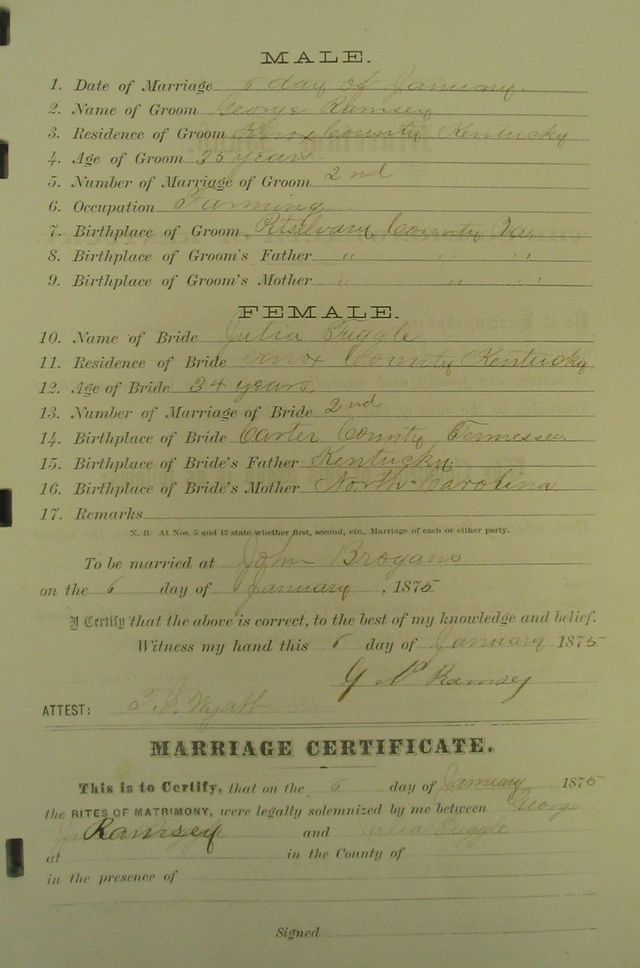 MALE.
1. Date of Marriage 6 day of January
2. Name of Groom George Ramsey
3. Residence of Groom Knox County Kentucky
4. Age of Groom 35 years
5. Number of Marriage of Groom 2nd
6. Occupation Farming
7. Birthplace of Groom County Va
8. Birthplace of Groom's Father " " "
9. Birthplace of Groom's Mother " " "
FEMALE.
10. Name of Bride Julia
11. Residence of Bride Knox County Kentucky
12. Age of Bride 34 years.
13. Number of Marriage of Bride 2nd
14. Birthplace of Bride Carter County Tennessee
15. Birthplace of Bride's Father Kentucky
16. Birthplace of Bride's Mother North Carolina
17. Remarks
N. B. At Nos. 5 and 13 state whether first, second, etc., Marriage of each or either party.
To be married at John Brogans
on the 6 day of January, 1875
I Certify that the above is correct, to the best of my knowledge and belief.
Witness my hand this 6 day of January 1875
Ramsey
ATTEST: Wyatt
MARRIAGE CERTIFICATE.
This is to Certify, that on the 6 day of January 1875
the RITES OF MATRIMONY, were legally solemnized by me between George
Ramsey and Julia
at in the County of
in the presence of
Signed